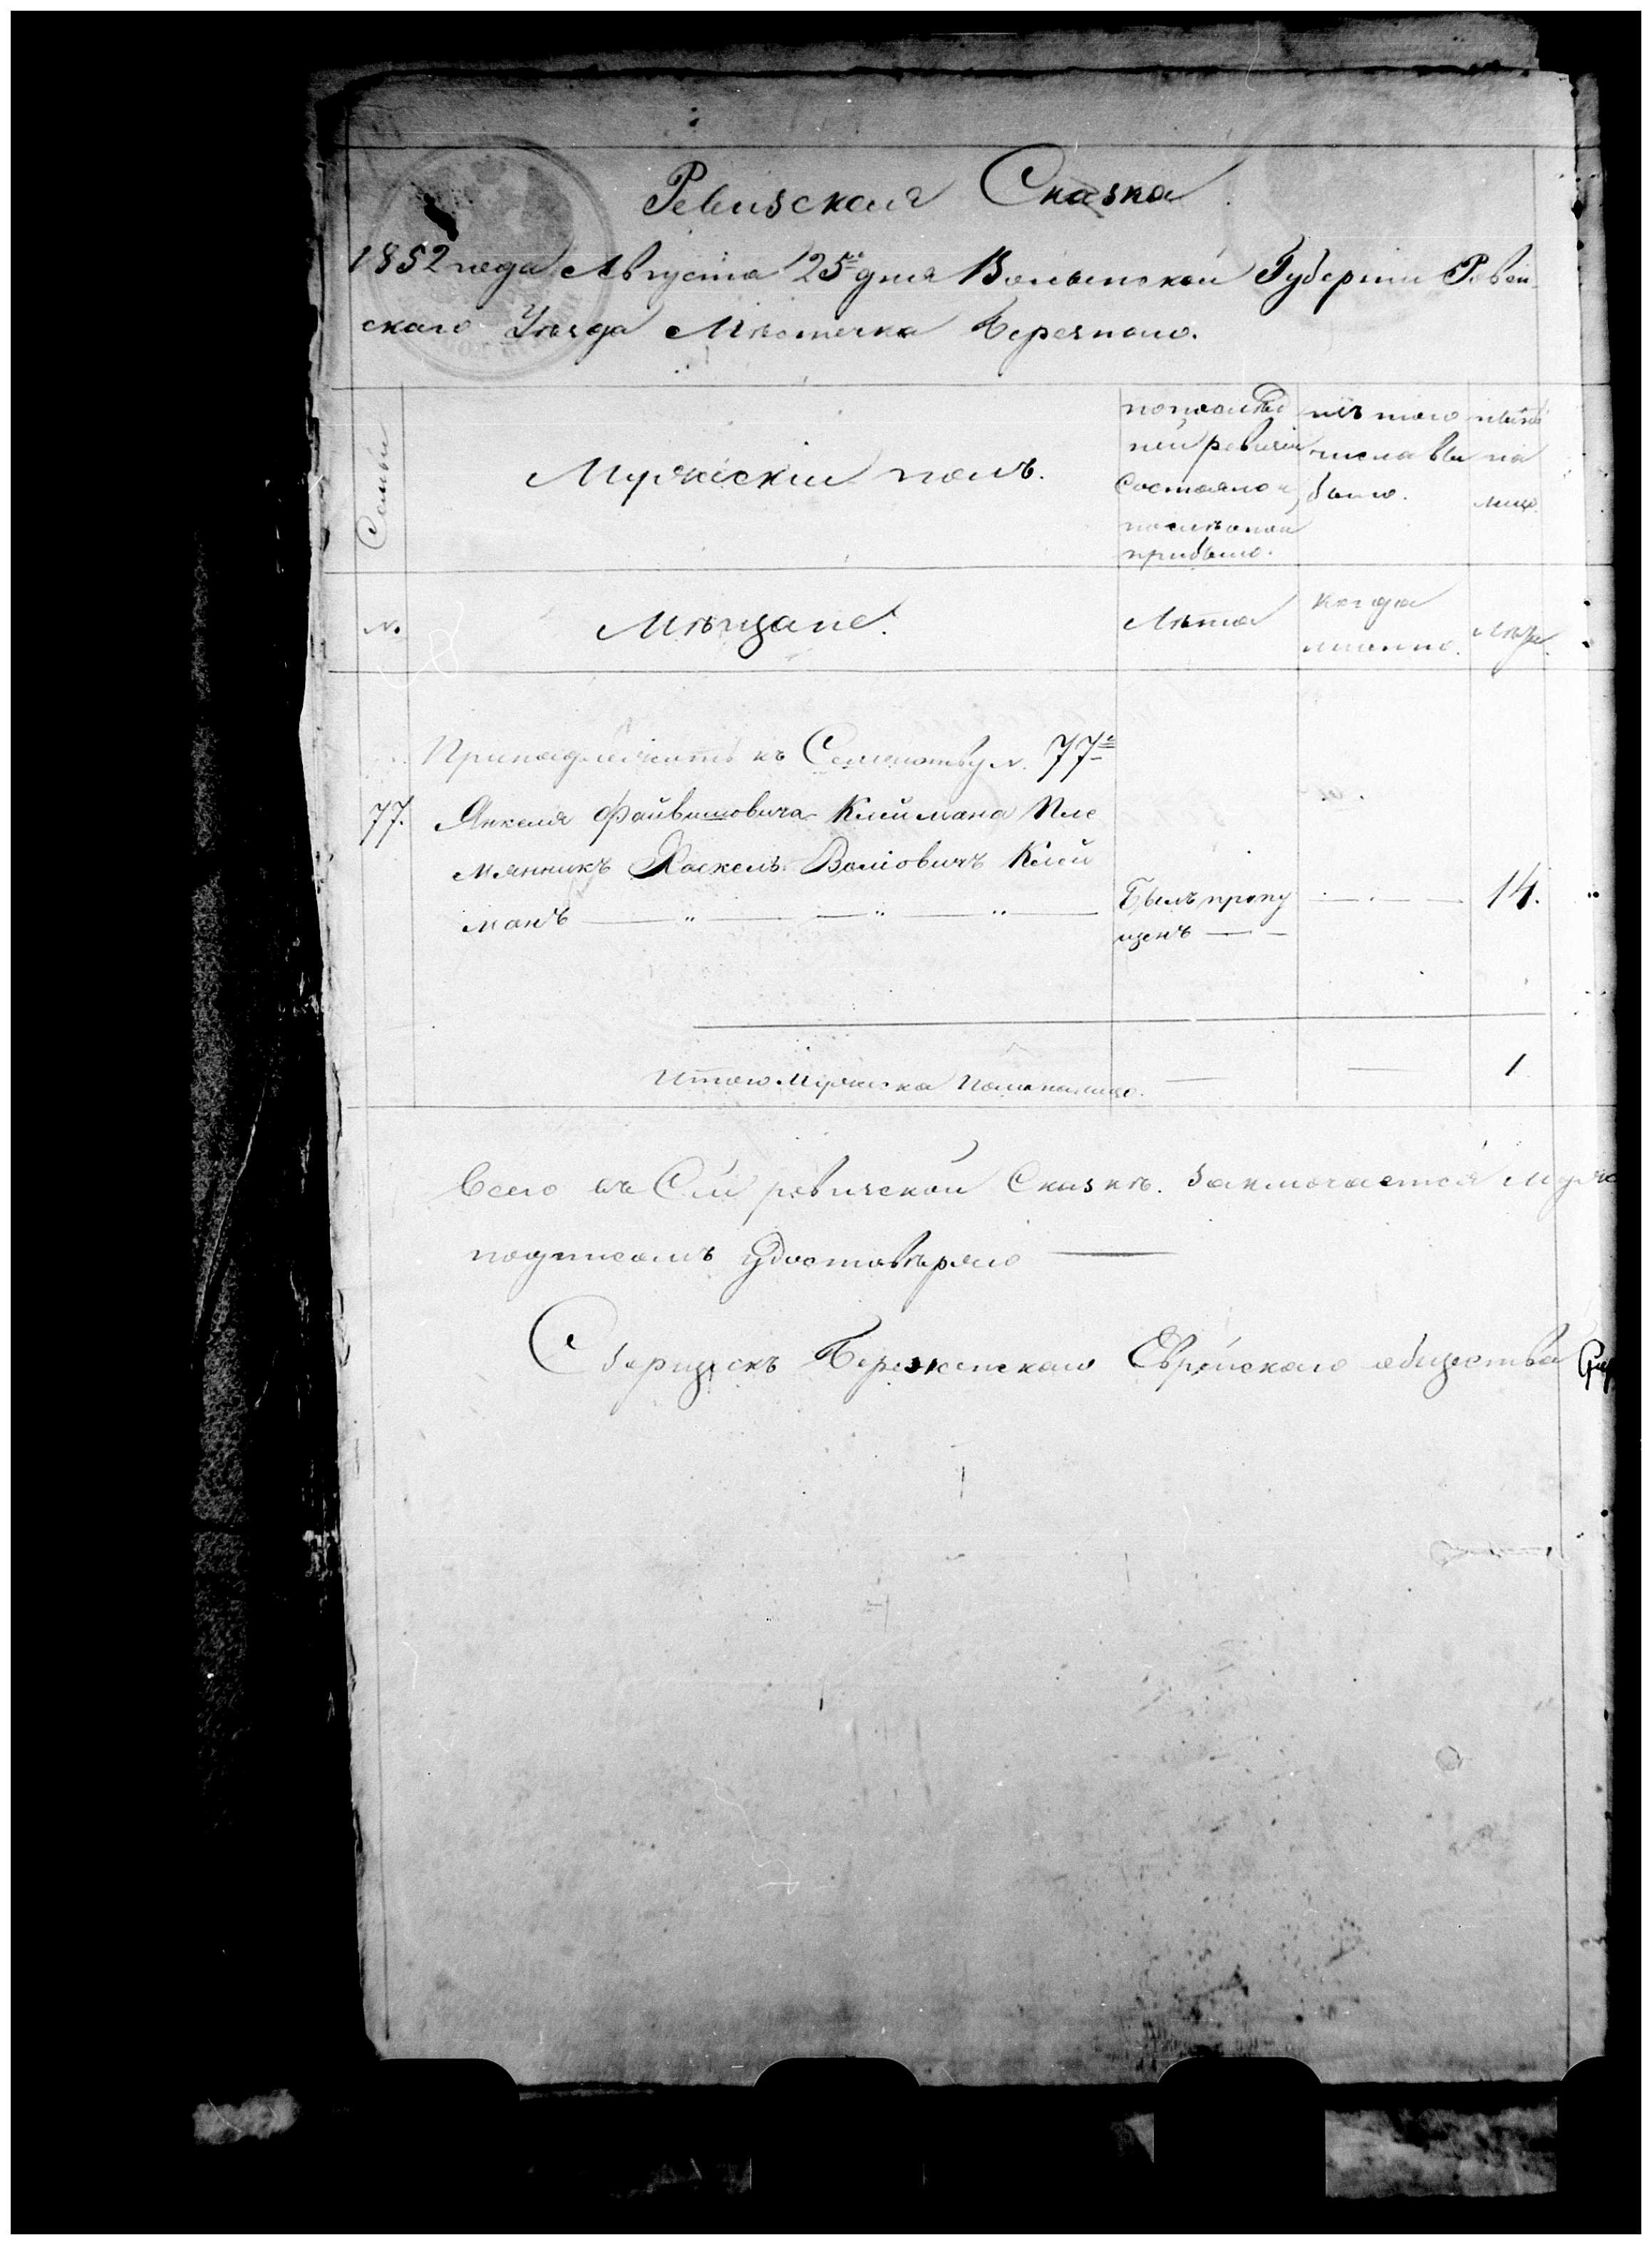 Ревизская Сказка
1852 года Августа 25го дня Волынской Губернии Ровен
скаго Уѣзда Мѣстечка Березнаго.
Семьи
Мужескій полъ.
по послѣд
ней ревизіи
состояло и
послѣ оной
прибыло.
изъ того
числа вы
было.
нынѣ
на
лицо.
№
Мѣщане.
Лѣта
когда
именно.
Лѣта.
Принадлежитъ къ Семейству № 77й
77. Янкеля Файвишовича Клеймана Пле
мянникъ Хаскель Волiовичъ Клей
манъ
Былъ пропу
щенъ
14.
Итого Мужеска Пола налицо.
1
Всего въ Сей ревизской Сказкѣ заключается муж
подписомъ удостовѣряю
Сборщикъ Березенскаго Еврейскаго общества